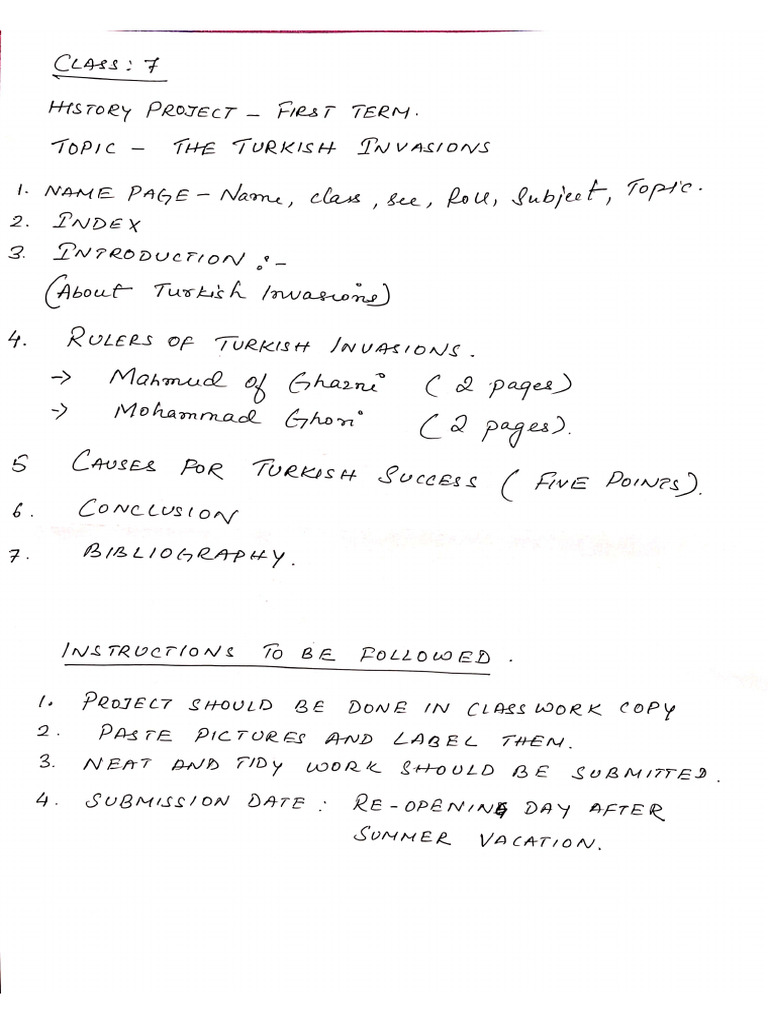 CLASS: 7
HISTORY PROJECT - FIRST TERM.
TOPIC - THE TURKISH INVASIONS
1. NAME PAGE - Name, class, sec, Roll, Subject, Topic.
2. INDEX
3. INTRODUCTION :-
(About Turkish Invasions)
4. RULERS OF TURKISH INVASIONS.
-> Mahmud of Ghazni (2 pages)
-> Mohammad Ghori (2 pages).
5 CAUSES FOR TURKISH SUCCESS (FIVE POINTS).
6. CONCLUSION
7. BIBLIOGRAPHY.
INSTRUCTIONS TO BE FOLLOWED.
1. PROJECT SHOULD BE DONE IN CLASSWORK COPY
2. PASTE PICTURES AND LABEL THEM.
3. NEAT AND TIDY WORK SHOULD BE SUBMITTED.
4. SUBMISSION DATE: RE-OPENING DAY AFTER
SUMMER VACATION.